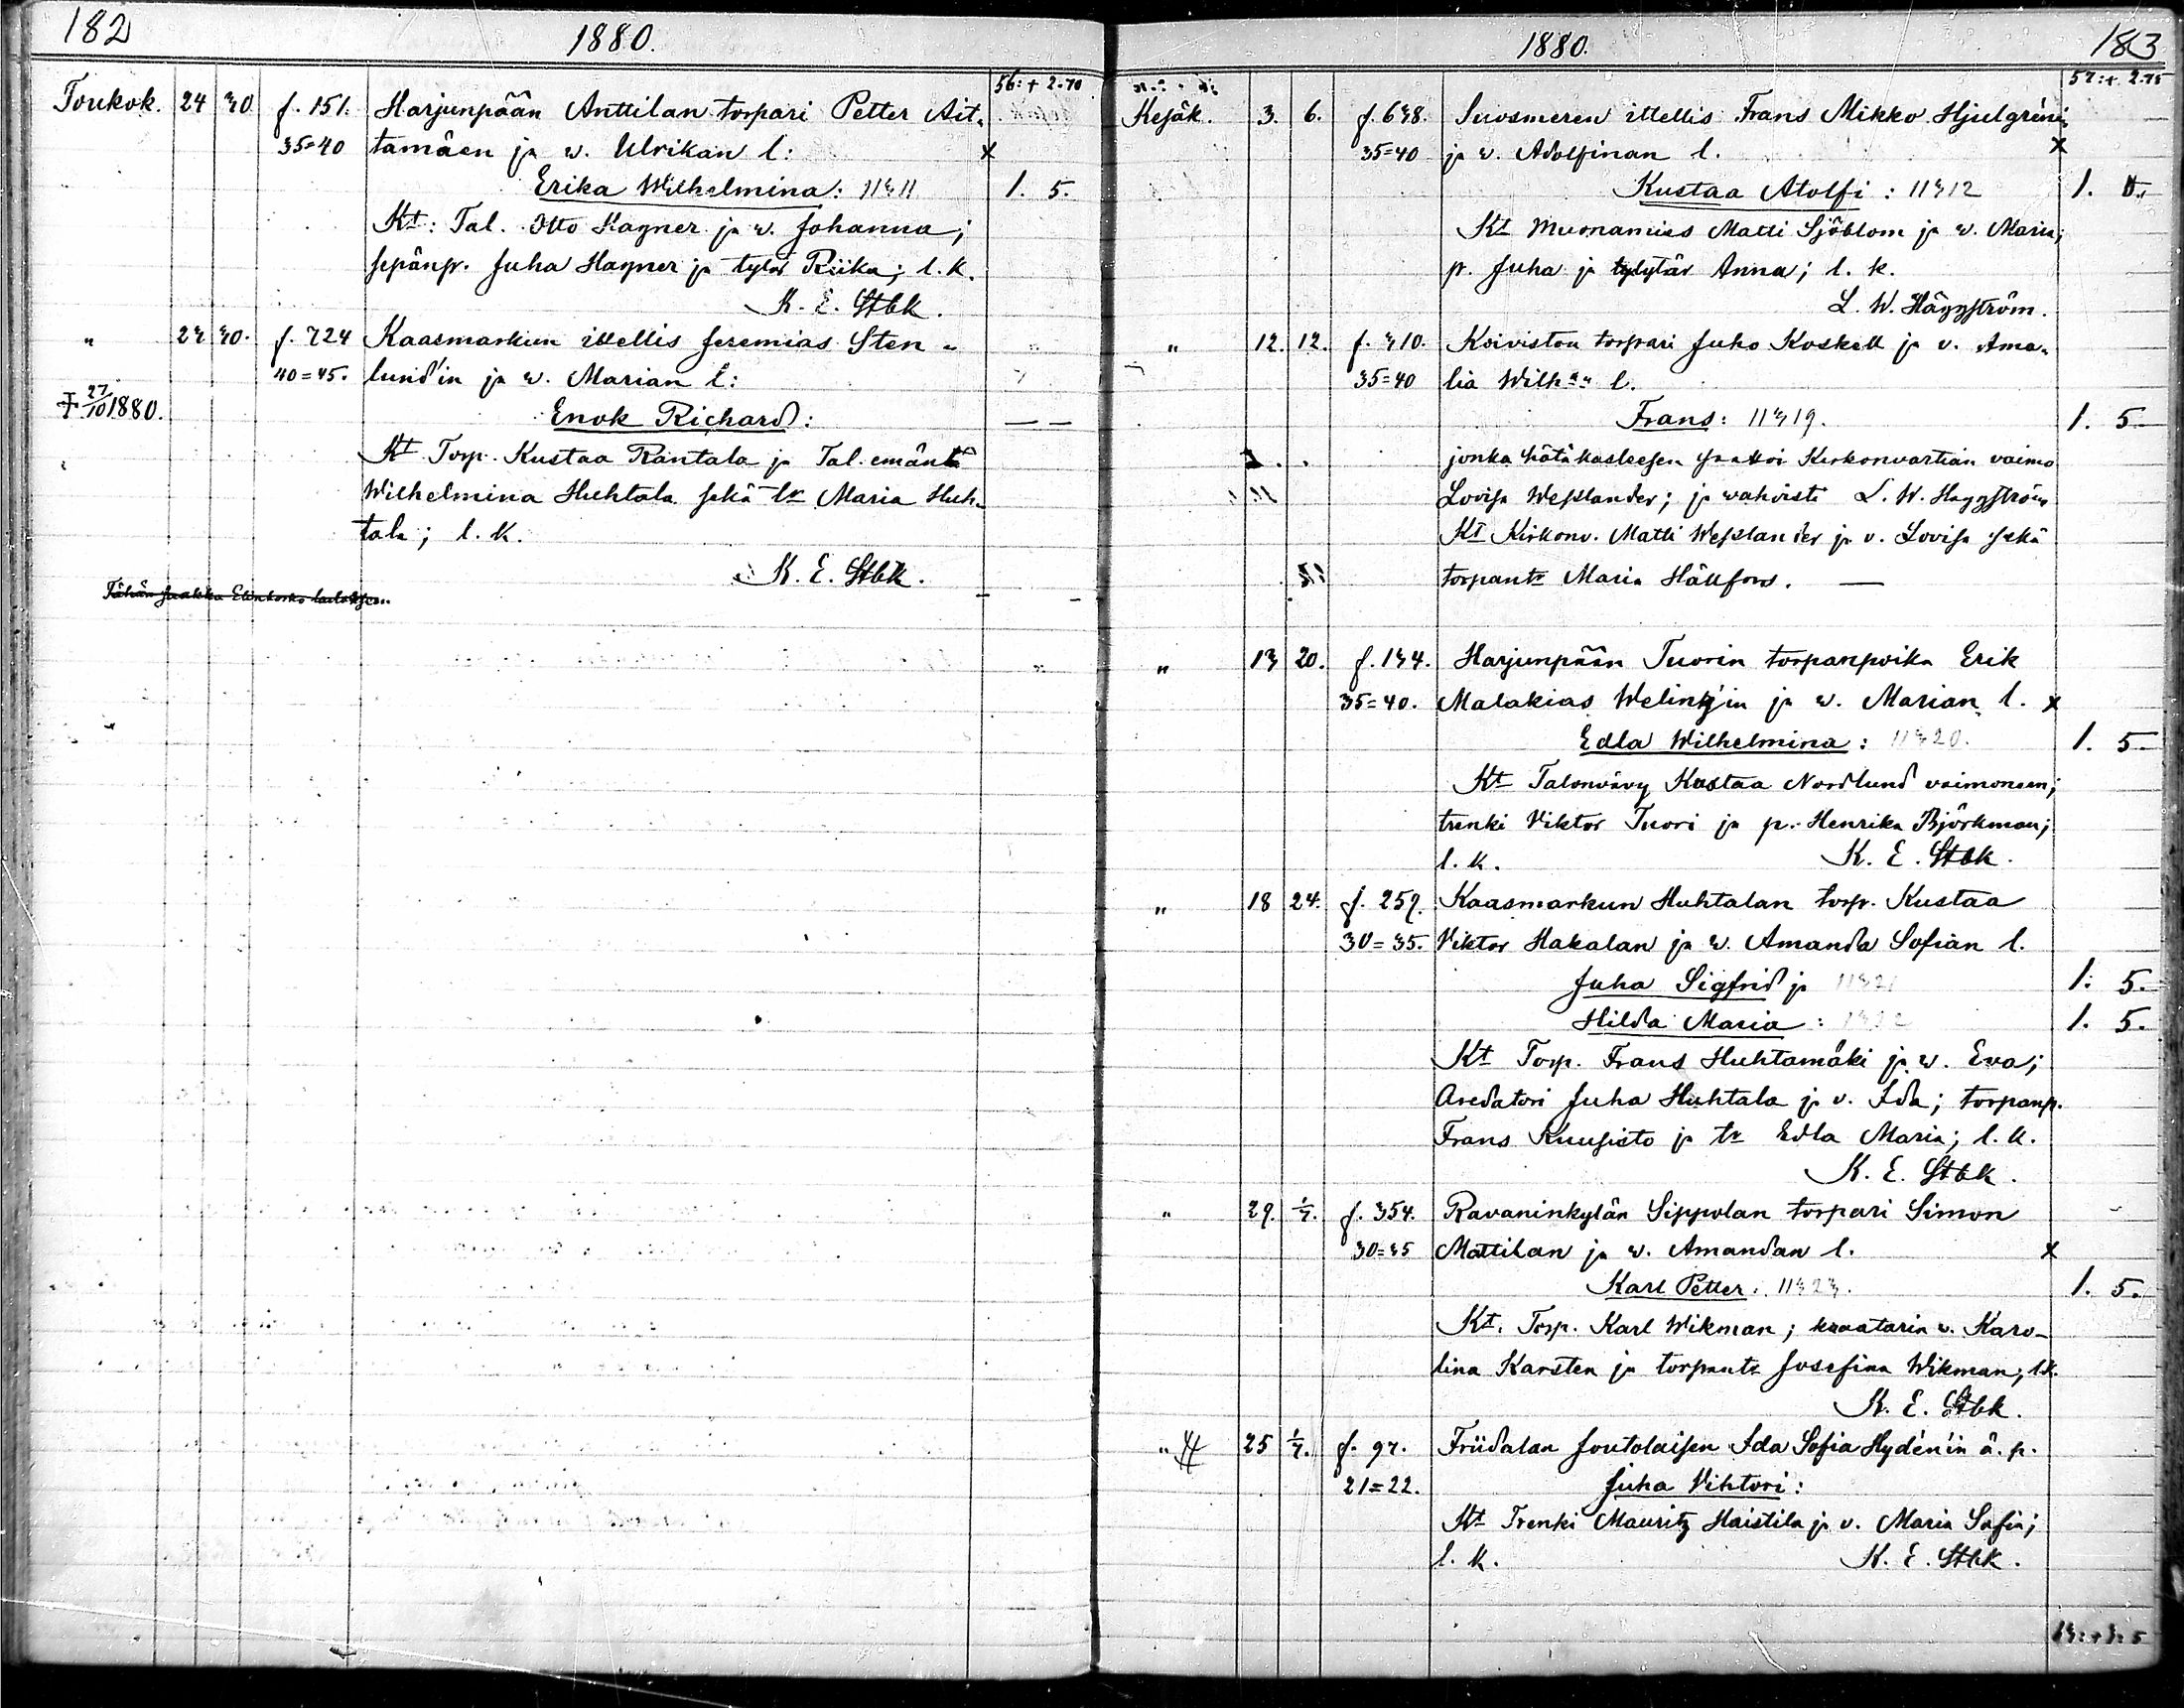 182
1880.
56:+ 2.70
Toukok. 24 30 f. 151. Harjunpään Anttilan torpari Petter Ait-
35=40 tamäen ja w. Ulrikan l: x
Erika Wilhelmina: 11311 1. 5.
Kt: Tal. Otto Hagner ja w. Johanna;
sepänp. Juha Hagner ja tytär Riika; l.k.
K. E. Stbk.
" 23 30. f. 724 Kaasmarkun itellis Jeremias Sten-
40=45. lund'in ja w. Marian l:
† 27/10 1880. Enok Richard: — —
Kt Torp. Kustaa Rantala ja Tal. emäntä
Wilhelmina Huhtala sekä tr Maria Huh-
tala; l.k.
K. E. Stbk.
Tähän
1880.
183
57:+ 2.75
Kesäk. 3. 6. f. 638. Suosmeren itellis Frans Mikko Hjulgrén'in
35=40 ja w. Adolfinan l. x
Kustaa Atolfi: 11312 1.
Kt Matti Sjöblom ja w. Maria;
p. Juha ja tytär Anna; l. k.
L. W. Häggström.
" 12. 12. f. 310. Koiviston torpari Juho Koskell ja v. Ama-
35=40 lia Wilh:n l.
Frans: 11319. 1. 5
jonka hätäkasteesen saattoi Kirkonvartian vaimo
Lovisa Wesslander; ja wahvisti L. W. Häggström
Kt Kirkonv. Matti Wesslander ja v. Lovisa sekä
torpantr Maria Hällfors. —
" 13 20. f. 134. Harjunpään Tuorin torpanpoika Erik
35=40. Malakias Welin'in ja w. Marian l. x
Edla Wilhelmina: 11320. 1. 5
Kt Talonvävy Kustaa Nordlund vaimoneen;
trenki Viktor Tuori ja p. Henrika Björkman;
l. k. K. E. Stbk.
" 18 24. f. 259. Kaasmarkun Huhtalan torp. Kustaa
30=35. Viktor Hakalan ja w. Amanda Sofian l.
Juha Sigfrid ja 11321 1: 5.
Hilda Maria: 1. 5.
Kt Torp. Frans Huhtamäki ja w. Eva;
Aredatori Juha Huhtala ja v. Ida; torpanp.
Frans Kuusisto ja tr Edla Maria; l. k.
K. E. Stbk.
" 29. 1/7. f. 354. Ravaninkylän Sippolan torpari Simon
30=35 Mattilan ja w. Amandan l. x
Karl Petter. 11323. 1. 5.
Kt. Torp. Karl Wikman; kraatarin v. Karo-
lina Karsten ja torpantr Josefina Wikman; l.k.
K. E. Stbk.
" 25 1/7. f. 97. Friidalan Joutolaisen Ida Sofia Hydén'in ä. p.
21=22. Juha Vihtori:
Kt Trenki Mauritz Haistila ja v. Maria Sofia;
l. k. K. E. Stbk.